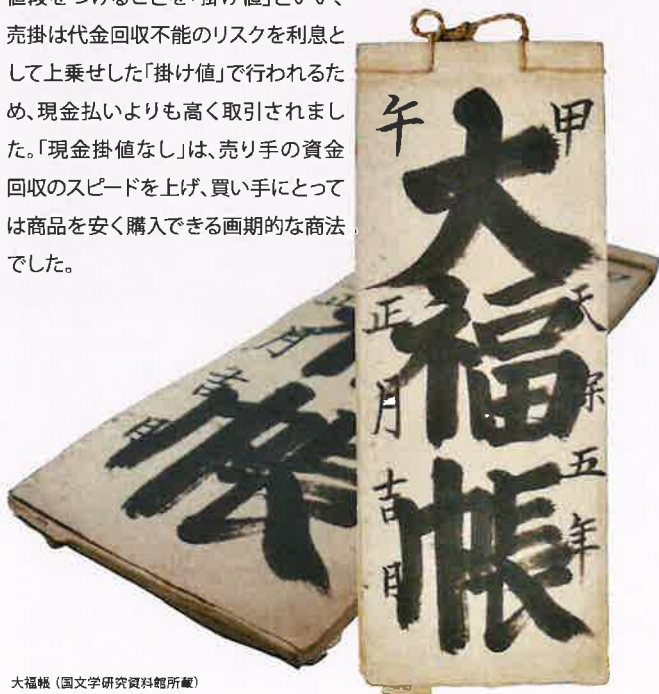 値段をつけることを「掛け値」といい、
売掛は代金回収不能のリスクを利息と
して上乗せした「掛け値」で行われるた
め、現金払いよりも高く取引されまし
た。「現金掛値なし」は、売り手の資金
回収のスピードを上げ、買い手にとって
は商品を安く購入できる画期的な商法
でした。
甲 天保五年
大福帳
午 正月吉日
帳
正月吉日
大福帳（国文学研究資料館所蔵）